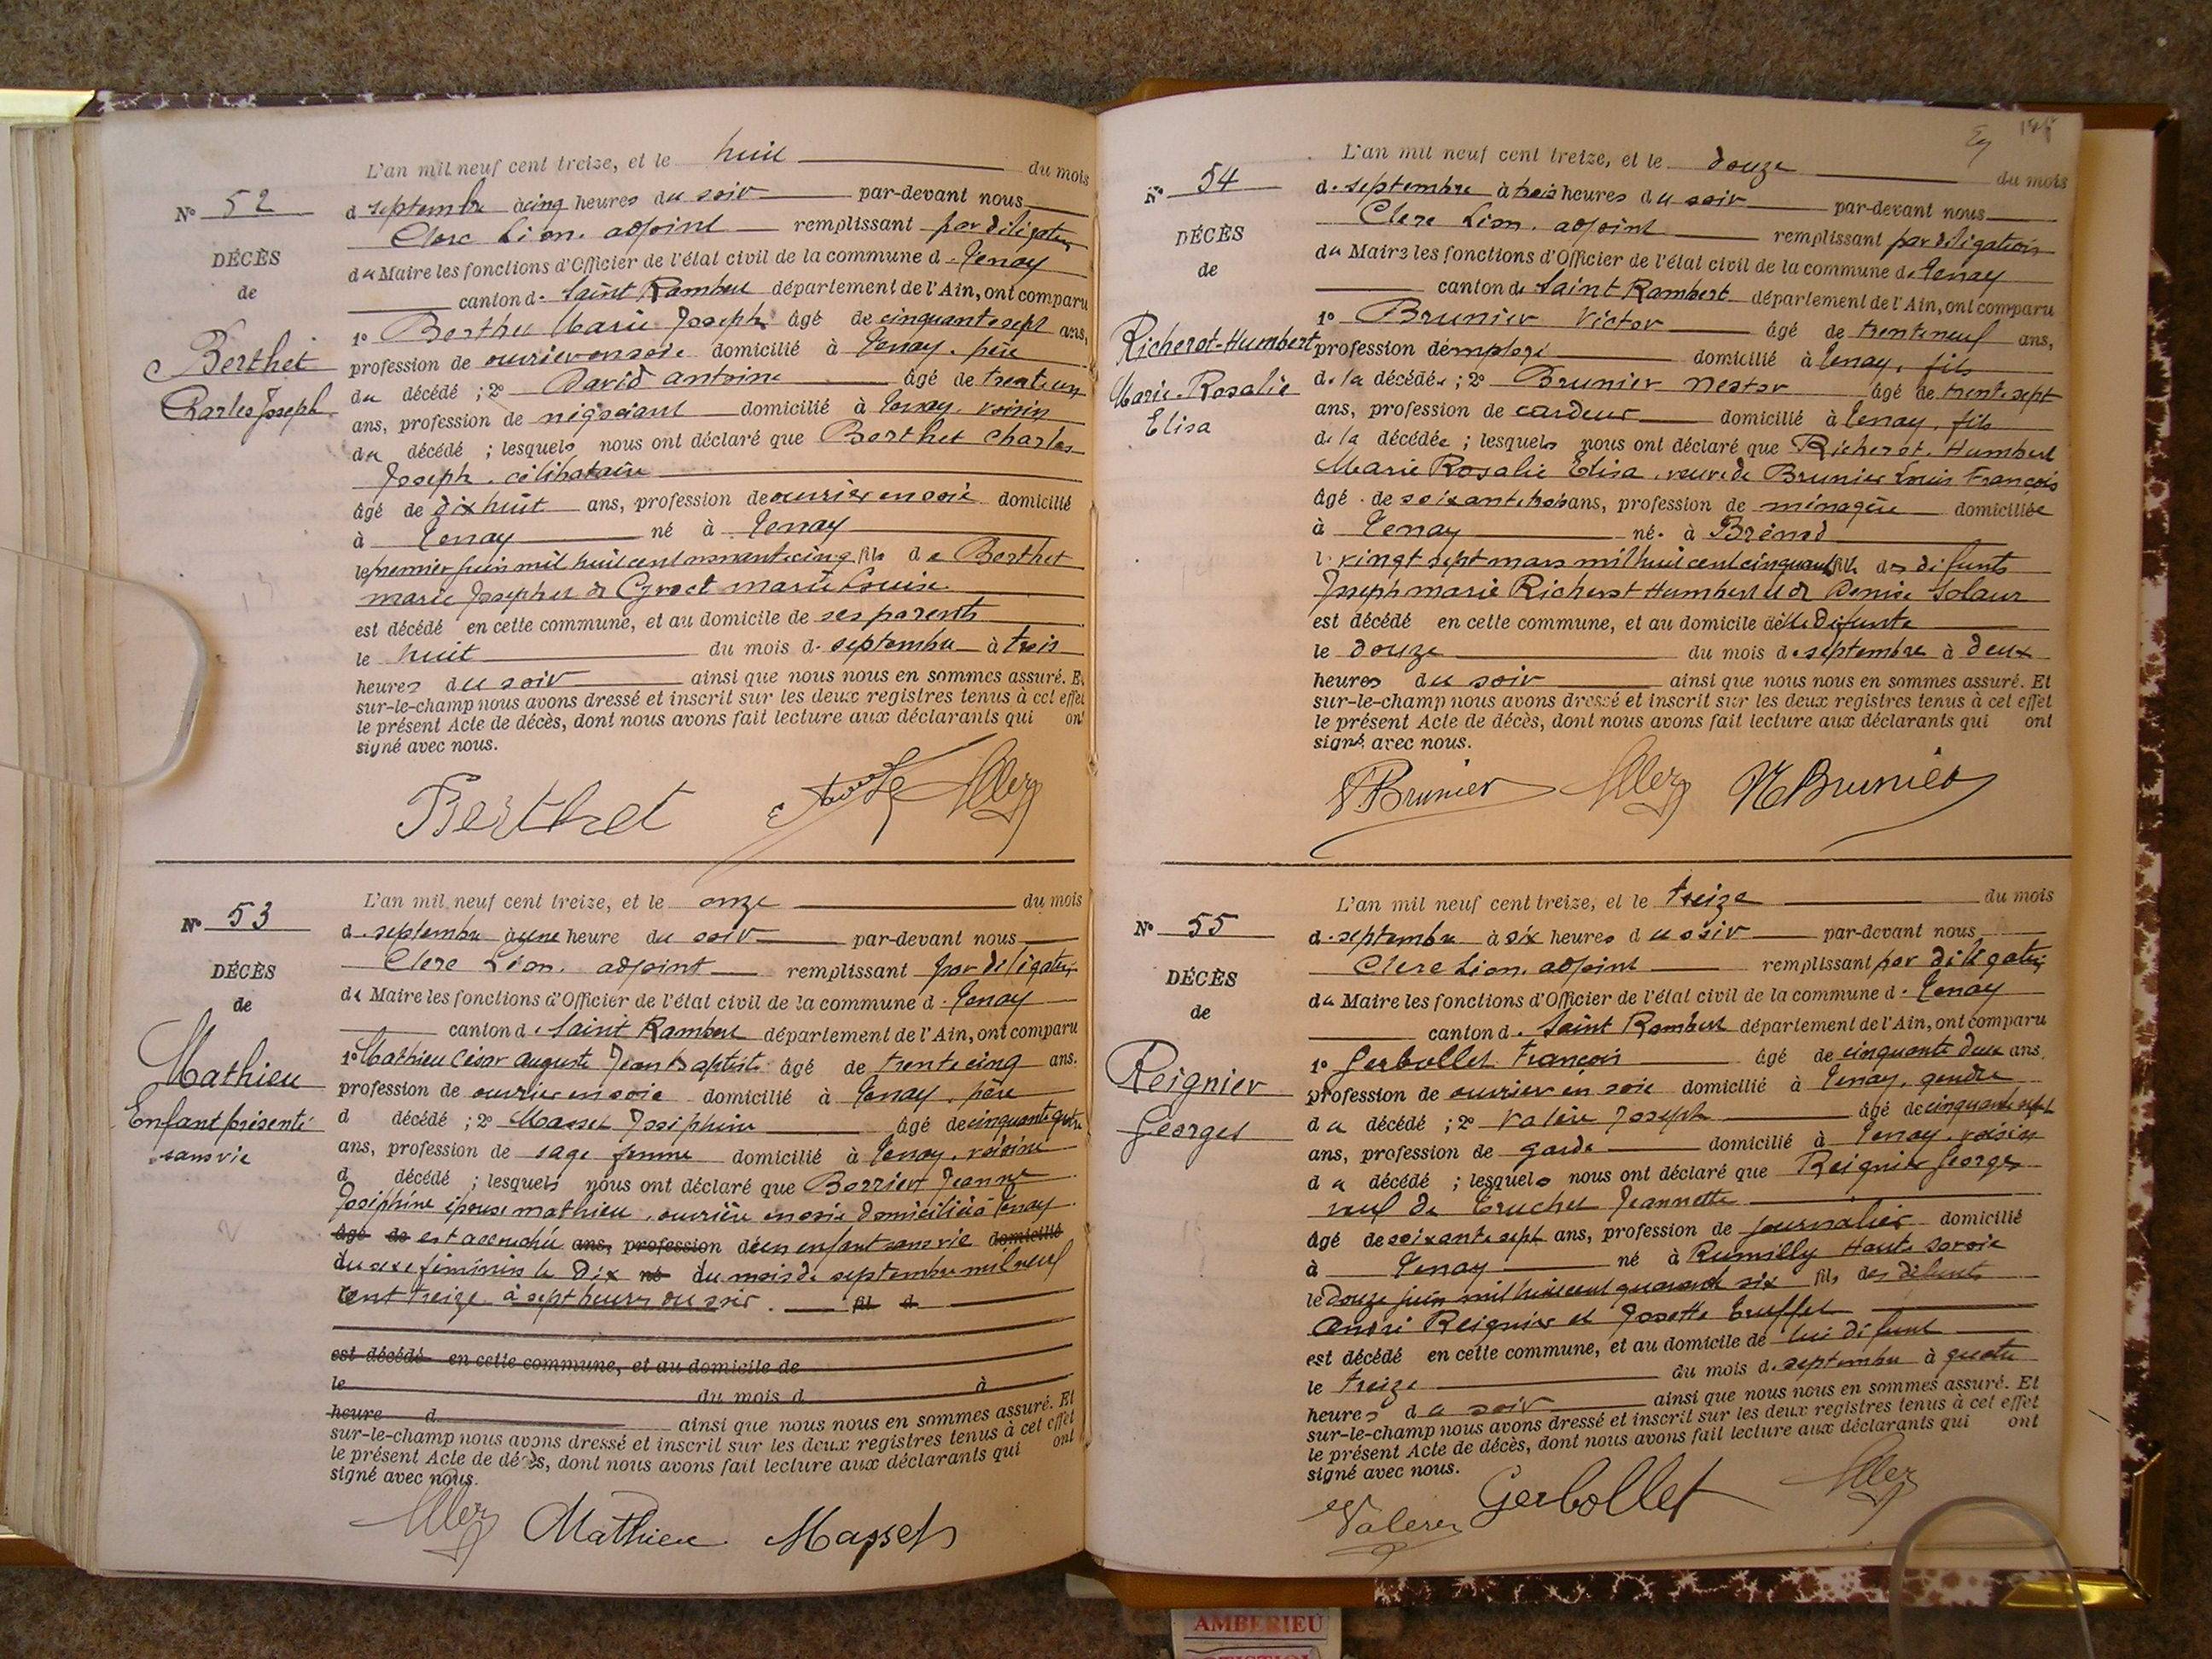 L'an mil neuf cent treize, et le huit du mois
N° 52
d. septembre à cinq heures du soir par-devant nous
Clerc Léon. adjoint remplissant par délégation
DÉCÈS
du Maire les fonctions d'Officier de l'état civil de la commune d. Tenay
de
canton d. Saint Rambert département de l'Ain, ont comparu
1° Berthet Marie Joseph âgé de cinquante sept ans,
Berthet
profession de ouvrier en soie domicilié à Tenay. père
du décédé ; 2° David antoine âgé de trente un
Charles Joseph
ans, profession de négociant domicilié à Tenay. voisin
du décédé ; lesquels nous ont déclaré que Berthet Charles
Joseph. célibataire
âgé de dix huit ans, profession de ouvrier en soie domicilié
à Tenay né à Tenay
le premier juin mil huit cent nonante cinq fils de Berthet
marie Joseph et de marie Louise
est décédé en cette commune, et au domicile de ses parents
le huit du mois d. septembre à trois
heures du soir ainsi que nous nous en sommes assuré. Et
sur-le-champ nous avons dressé et inscrit sur les deux registres tenus à cet effet
le présent Acte de décès, dont nous avons fait lecture aux déclarants qui ont
signé avec nous.
Berthet
L'an mil neuf cent treize, et le onze du mois
N° 53
d. septembre à une heure du soir par-devant nous
Clerc Léon. adjoint remplissant par délégation
DÉCÈS
du Maire les fonctions d'Officier de l'état civil de la commune d. Tenay
de
canton d. Saint Rambert département de l'Ain, ont comparu
1° Mathieu César auguste Jean Baptiste âgé de trente cinq ans.
Mathieu
profession de ouvrier en soie domicilié à Tenay. père
Enfant présenté
d décédé ; 2° Masset Joséphine âgé de cinquante quatre
sans vie
ans, profession de sage femme domicilié à Tenay. voisine
d décédé ; lesquels nous ont déclaré que Borrier Jeanne
Joséphine épouse mathieu. ouvrière en soie domiciliée à Tenay
âgé de est accouchée ans, profession de d'un enfant sans vie domicilié
du sexe féminin le dix né du mois de septembre mil neuf
cent treize à sept heures du soir. fil d
est décédé en cette commune, et au domicile de
le du mois d à
heure d ainsi que nous nous en sommes assuré. Et
sur-le-champ nous avons dressé et inscrit sur les deux registres tenus à cet effet
le présent Acte de décès, dont nous avons fait lecture aux déclarants qui ont
signé avec nous.
Mathieu Masset
L'an mil neuf cent treize, et le douze du mois
N° 54
d. septembre à trois heures du soir par-devant nous
Clerc Léon. adjoint remplissant par délégation
DÉCÈS
du Maire les fonctions d'Officier de l'état civil de la commune d. Tenay
de
canton de Saint Rambert département de l'Ain, ont comparu
1° Brunier Victor âgé de trente neuf ans,
Richerot-Humbert
profession d'employé domicilié à Tenay, fils
Marie-Rosalie
de la décédée ; 2° Brunier Nestor âgé de trente sept
Elisa
ans, profession de cardeur domicilié à Tenay, fils
de la décédée ; lesquels nous ont déclaré que Richerot. Humbert
Marie Rosalie Elisa. veuve de Brunier Louis François
âgé. de soixante trois ans, profession de ménagère domiciliée
à Tenay né. à Brénod
le vingt sept mars mil huit cent cinquante fille des défunts
Joseph marie Richerot Humbert et de Denise Solaur
est décédé en cette commune, et au domicile de la défunte
le douze du mois d. septembre à deux
heures du soir ainsi que nous nous en sommes assuré. Et
sur-le-champ nous avons dressé et inscrit sur les deux registres tenus à cet effet
le présent Acte de décès, dont nous avons fait lecture aux déclarants qui ont
signé avec nous.
V Brunier N Brunier
L'an mil neuf cent treize, et le treize du mois
N° 55
d. septembre à six heures du soir par-devant nous
Clerc Léon. adjoint remplissant par délégation
DÉCÈS
du Maire les fonctions d'Officier de l'état civil de la commune d. Tenay
de
canton d. Saint Rambert département de l'Ain, ont comparu
1° Gerbollet François âgé de cinquante deux ans,
Reignier
profession de ouvrier en soie domicilié à Tenay, gendre
Georges
du décédé ; 2° Valère Joseph âgé de cinquante sept
ans, profession de garde domicilié à Tenay. voisin
du décédé ; lesquels nous ont déclaré que Reignier Georges
veuf de Truchet Jeannette
âgé de soixante sept ans, profession de journalier domicilié
à Tenay né à Rumilly Haute Savoie
le douze juin mil huit cent quarante six fils des défunts
André Reignier et Josette Truffet
est décédé en cette commune, et au domicile de lui défunt
le treize du mois d. septembre à quatre
heures du soir ainsi que nous nous en sommes assuré. Et
sur-le-champ nous avons dressé et inscrit sur les deux registres tenus à cet effet
le présent Acte de décès, dont nous avons fait lecture aux déclarants qui ont
signé avec nous.
Valere Gerbollet
AMBERIEU